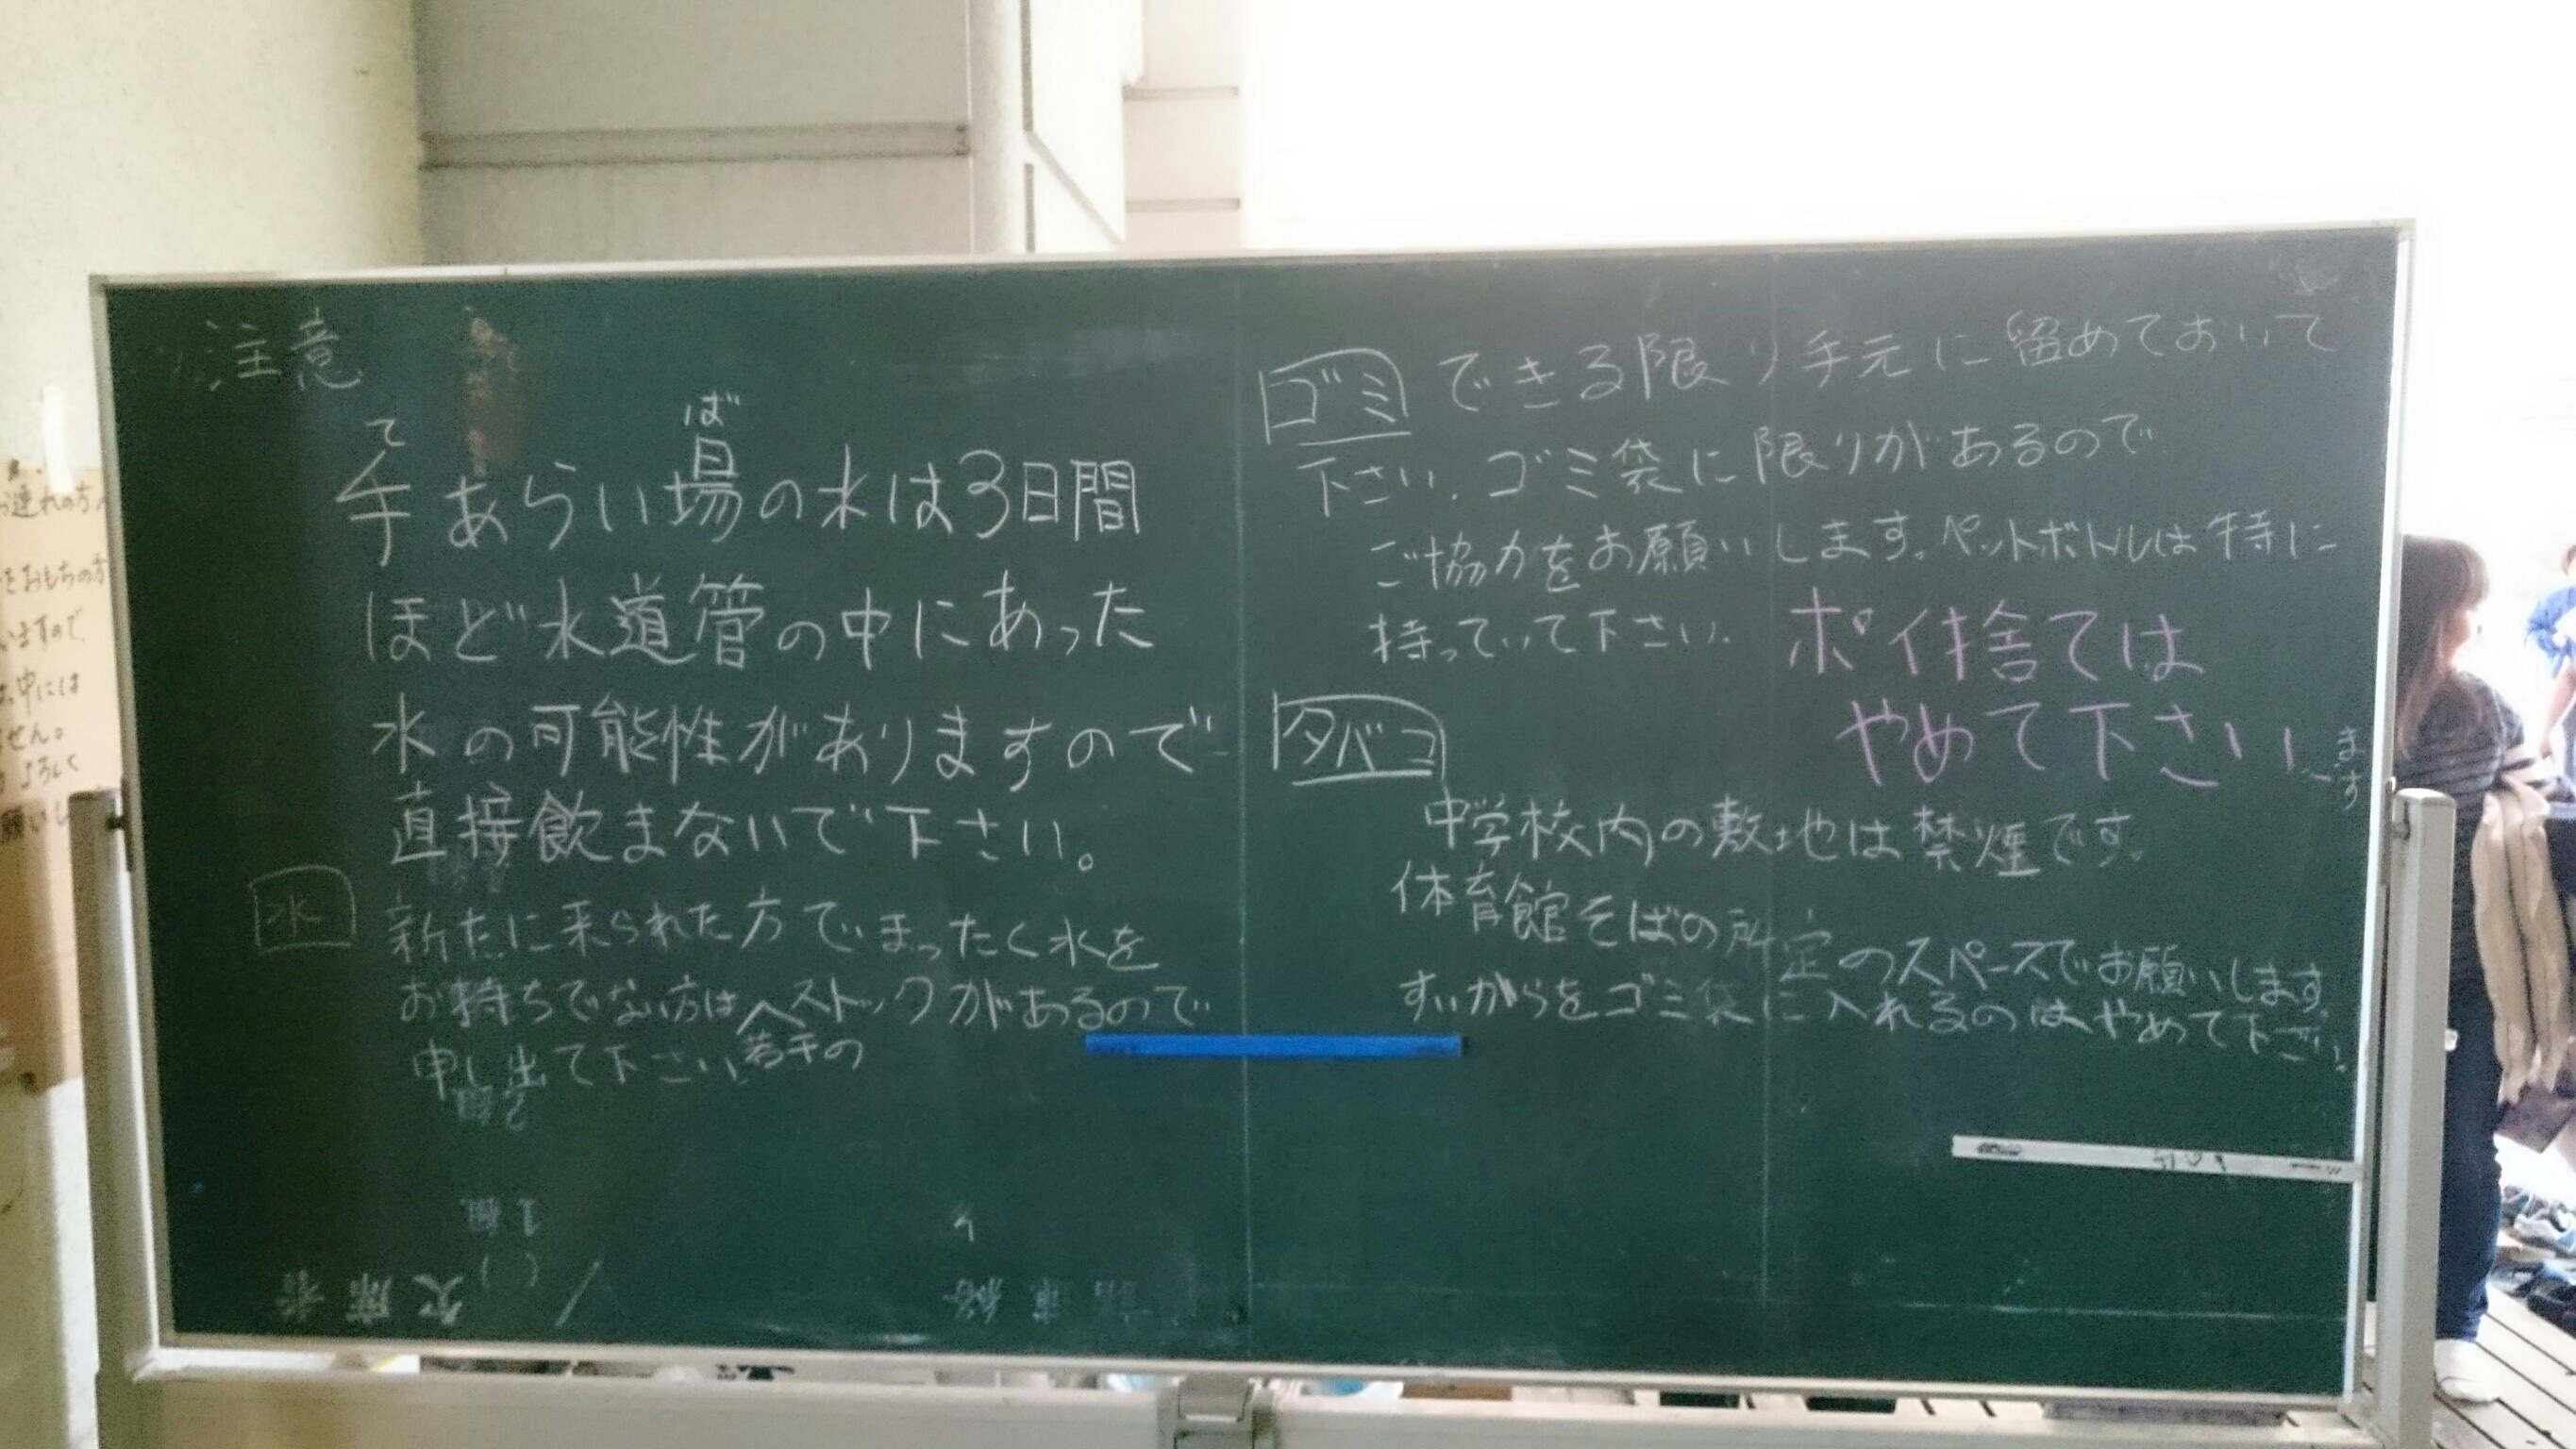 注意
て
ば
手あらい場の水は3日間
ほど水道管の中にあった
水の可能性がありますので
直接飲まないで下さい。
水
新たに来られた方でまったく水を
お持ちでない方はストックがあるので
若干の
申し出て下さい
ゴミ
できる限り手元に留めておいて
下さい.ゴミ袋に限りがあるので
ご協力をお願いします。ペットボトルは特に
持っていて下さい.
ポイ捨ては
やめて下さい
ます
タバコ
中学校内の敷地は禁煙です。
体育館そばの所定のスペースでお願いします。
すいがらをゴミ袋に入れるのはやめて下さい.
1組
欠席者
( )
連れの方
をおもちの方
いますので
中には
せん。
よろしく
願いし